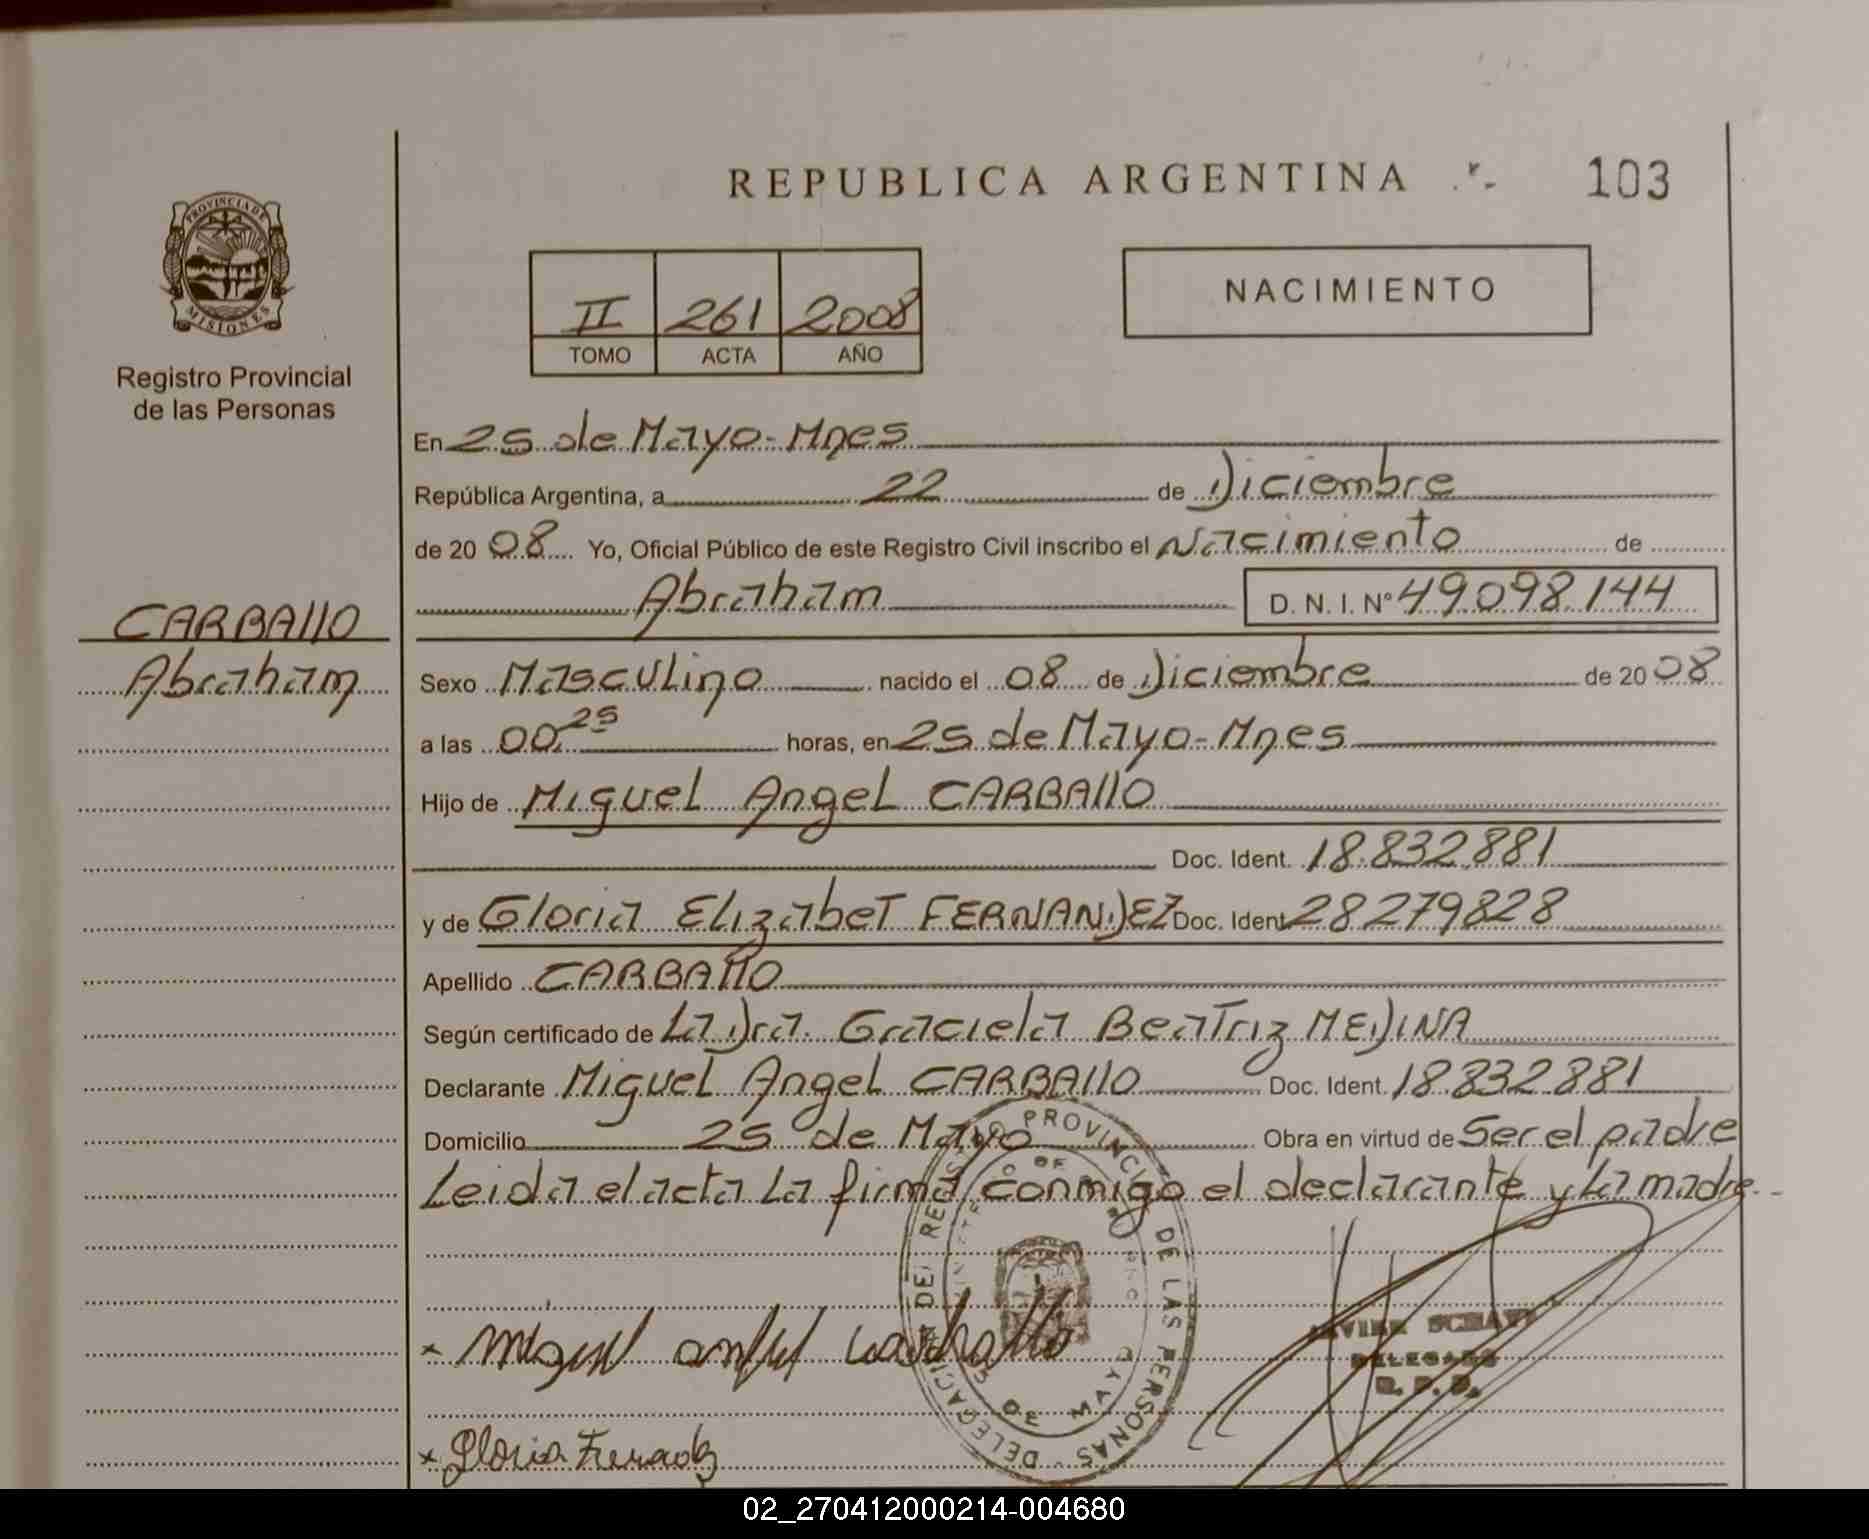 REPUBLICA ARGENTINA
103
PROVINCIA DE
MISIONES
Registro Provincial
de las Personas
II 261 2008
TOMO ACTA AÑO
NACIMIENTO
En 25 de Mayo-Mnes
República Argentina, a 22 de Diciembre
de 20 08 Yo, Oficial Público de este Registro Civil inscribo el Nacimiento de
Abraham D. N. I. Nº 49098144
CARBAllO
Abraham
Sexo Masculino nacido el 08 de Diciembre de 20 08
a las 00 25 horas, en 25 de Mayo-Mnes
Hijo de Miguel Angel CARBAllO
Doc. Ident. 18.832.881
y de Gloria Elizabet FERNANDEZ Doc. Ident 28279828
Apellido CARBAllO
Según certificado de La Dra. Graciela Beatriz MEDINA
Declarante Miguel Angel CARBAllO Doc. Ident. 18832881
Domicilio 25 de Mayo Obra en virtud de Ser el padre
Leida el acta La firma conmigo el declarante y La madre.-
DELEGACION DEL REGISTRO PROVINCIAL DE LAS PERSONAS
DE MAYO
x Miguel angel Carballo
DELEGADO
x Gloria
02_270412000214-004680